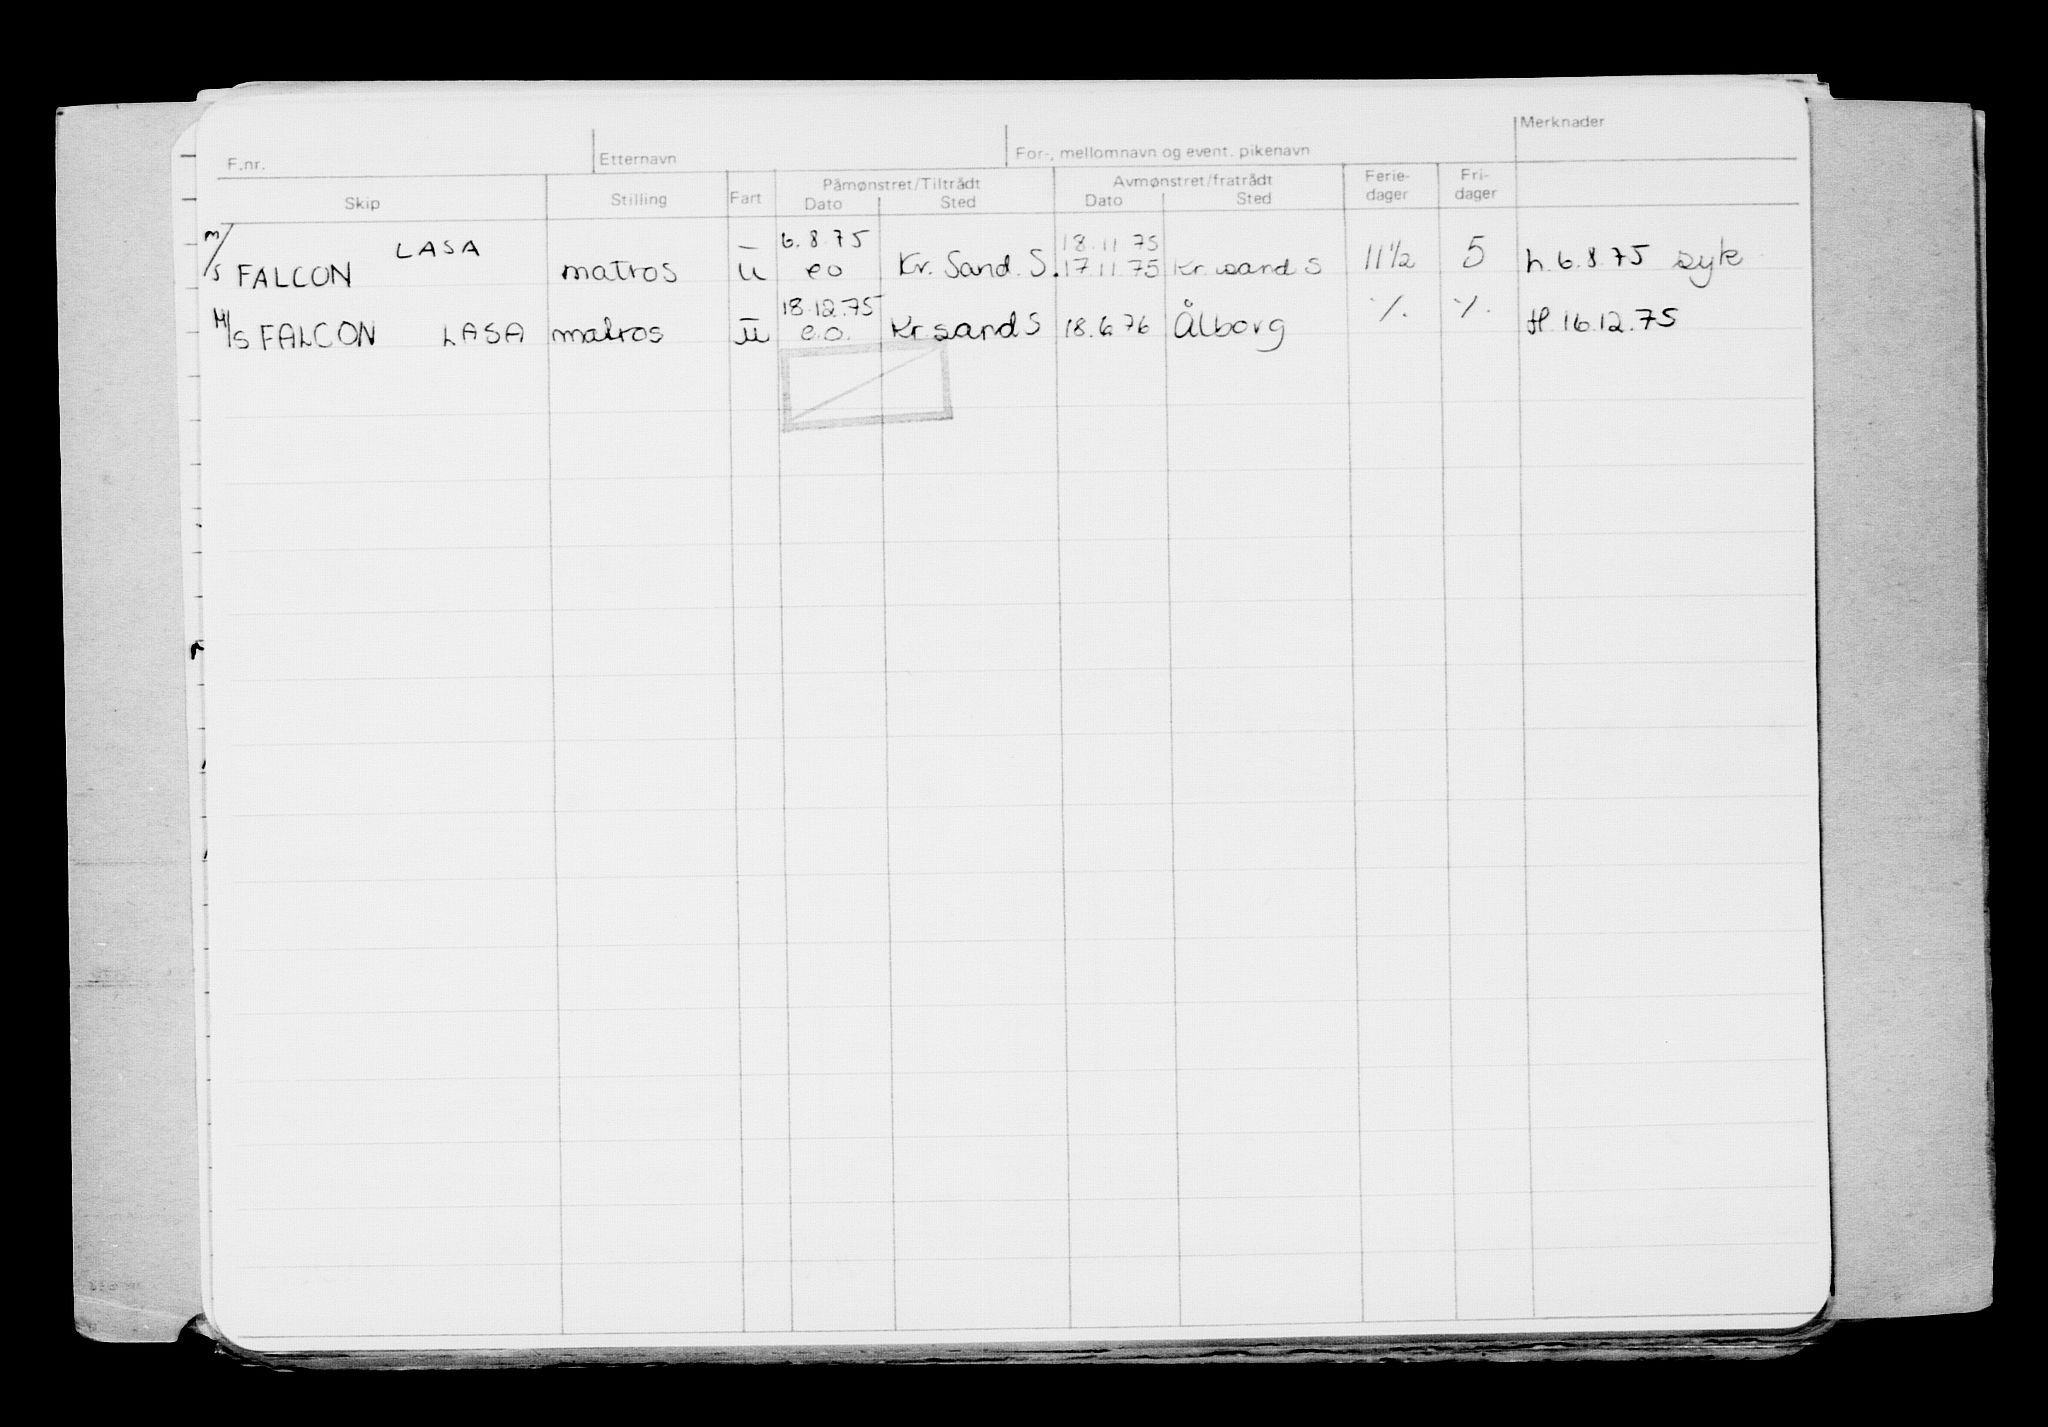 F.nr. Etternavn For-, mellomnavn og event. pikenavn Merknader
Skip Stilling Fart Påmønstret/Tiltrådt Dato Sted Avmønstret/fratrådt Dato Sted Ferie-dager Fri-dager
LASA 6.8.75 18.11 75
m/s FALCON matros u eo Kr. Sand. S. 17.11.75 Kr. sand S 11½ 5 h. 6.8.75 syk
18.12.75
M/S FALCON LASA matros u e.o. Kr sand S 18.6.76 Ålborg ⁒ ⁒ H. 16.12.75